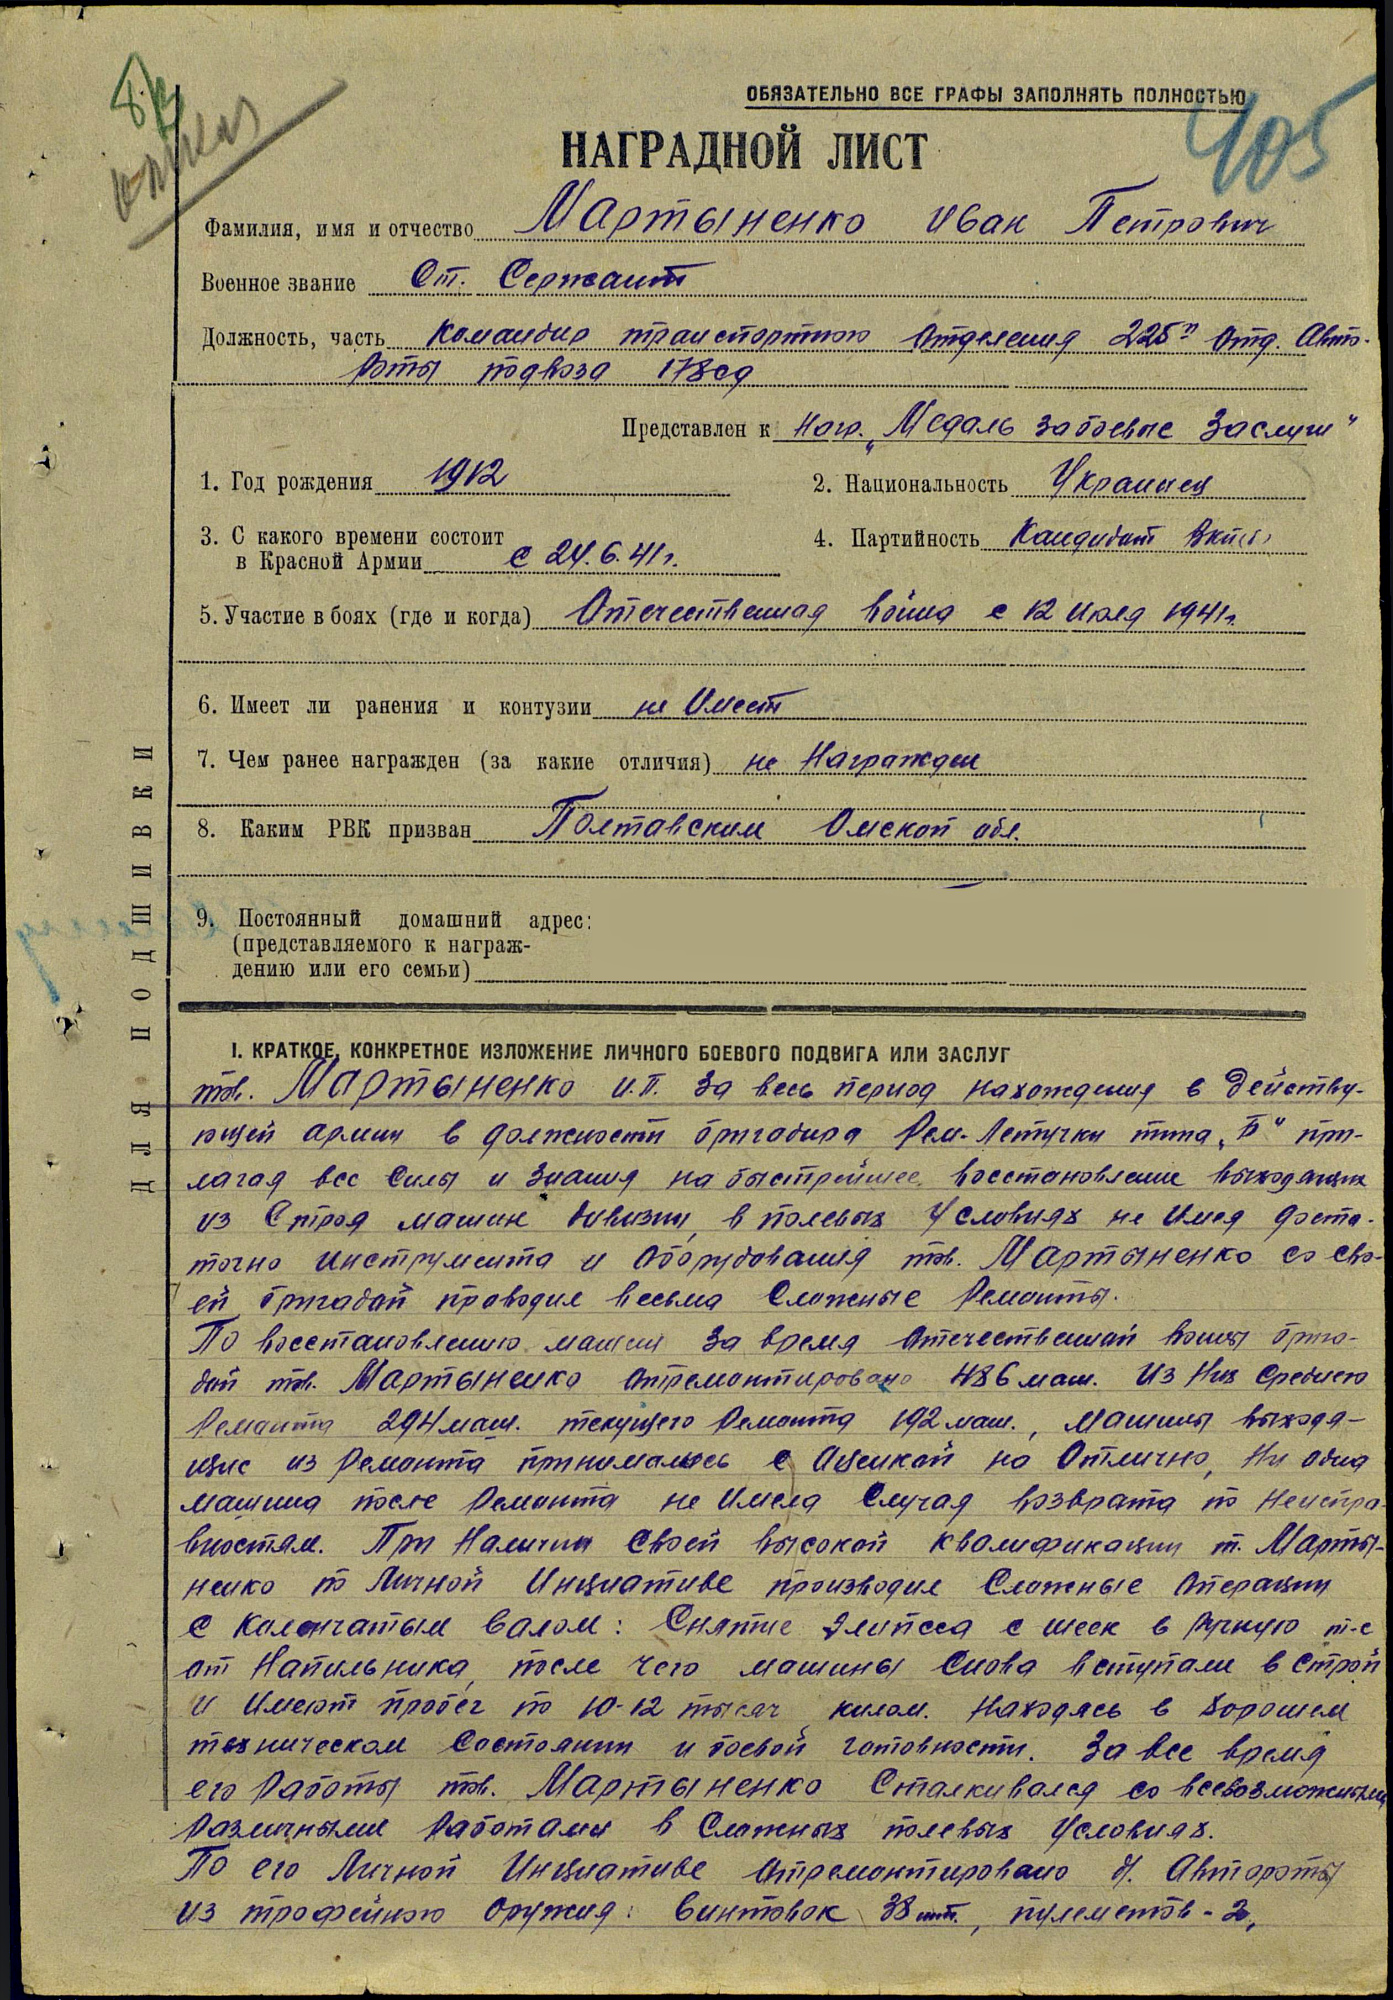 ОБЯЗАТЕЛЬНО ВСЕ ГРАФЫ ЗАПОЛНЯТЬ ПОЛНОСТЬЮ
405
НАГРАДНОЙ ЛИСТ
Фамилия, имя и отчество Мартыненко Иван Петрович
Военное звание Ст. Сержант
Должность, часть Командир транспортного Отделения 225й Отд. Авто-
Роты подвоза 178 сд
Представлен к Нагр. „Медаль за боевые Заслуги"
1. Год рождения 1912
2. Национальность Украинец
3. С какого времени состоит
в Красной Армии с 24.6.41г.
4. Партийность Кандидат ВКП(б)
5. Участие в боях (где и когда) Отечественная война с 12 Июля 1941г.
6. Имеет ли ранения и контузии не Имеет
7. Чем ранее награжден (за какие отличия) не Награжден
8. Каким РВК призван Полтавским Омской обл.
9. Постоянный домашний адрес:
(представляемого к награж-
дению или его семьи)
ДЛЯ ПОДШИВКИ
I. КРАТКОЕ, КОНКРЕТНОЕ ИЗЛОЖЕНИЕ ЛИЧНОГО БОЕВОГО ПОДВИГА ИЛИ ЗАСЛУГ
тов. Мартыненко И.П. За весь период нахождения в Действу-
ющей армии в должности бригадира Рем-Летучки типа „Б" при-
лагая все Силы и Знания на быстрейшее восстановление выходящих
из Строя машин дивизии, в полевых Условиях не Имея доста-
точно Инструмента и Оборудования тов. Мартыненко со сво-
ей бригадой проводил весьма Сложные Ремонты.
По восстановлению машин За время Отечественной войны брига-
дой тов. Мартыненко Отремонтировано 486 маш. Из Них Среднего
Ремонта 294 маш. текущего Ремонта 192 маш., Машины выходя-
щие из Ремонта принимались с Оценкой на Отлично, Ни одна
машина после Ремонта не Имела Случая возврата по Неиспра-
вностям. При Наличии Своей высокой квалификации т. Марты-
ненко по Личной Инициативе производил Сложные Операции
с Коленчатым валом: Снятие Элипсса с шеек в Ручную т-с
от Напильника, после чего машины Снова вступали в Строй
и Имеют пробег по 10-12 тысяч килом. Находясь в Хорошем
техническом Состоянии и боевой готовности. За все время
его Работы тов. Мартыненко Сталкивался со всевозможными
Различными Работами в Сложных полевых Условиях.
По его Личной Инициативе Отремонтировано д/ Автороты
из трофейного оружия: Винтовок 38 шт., пулеметов - 2,